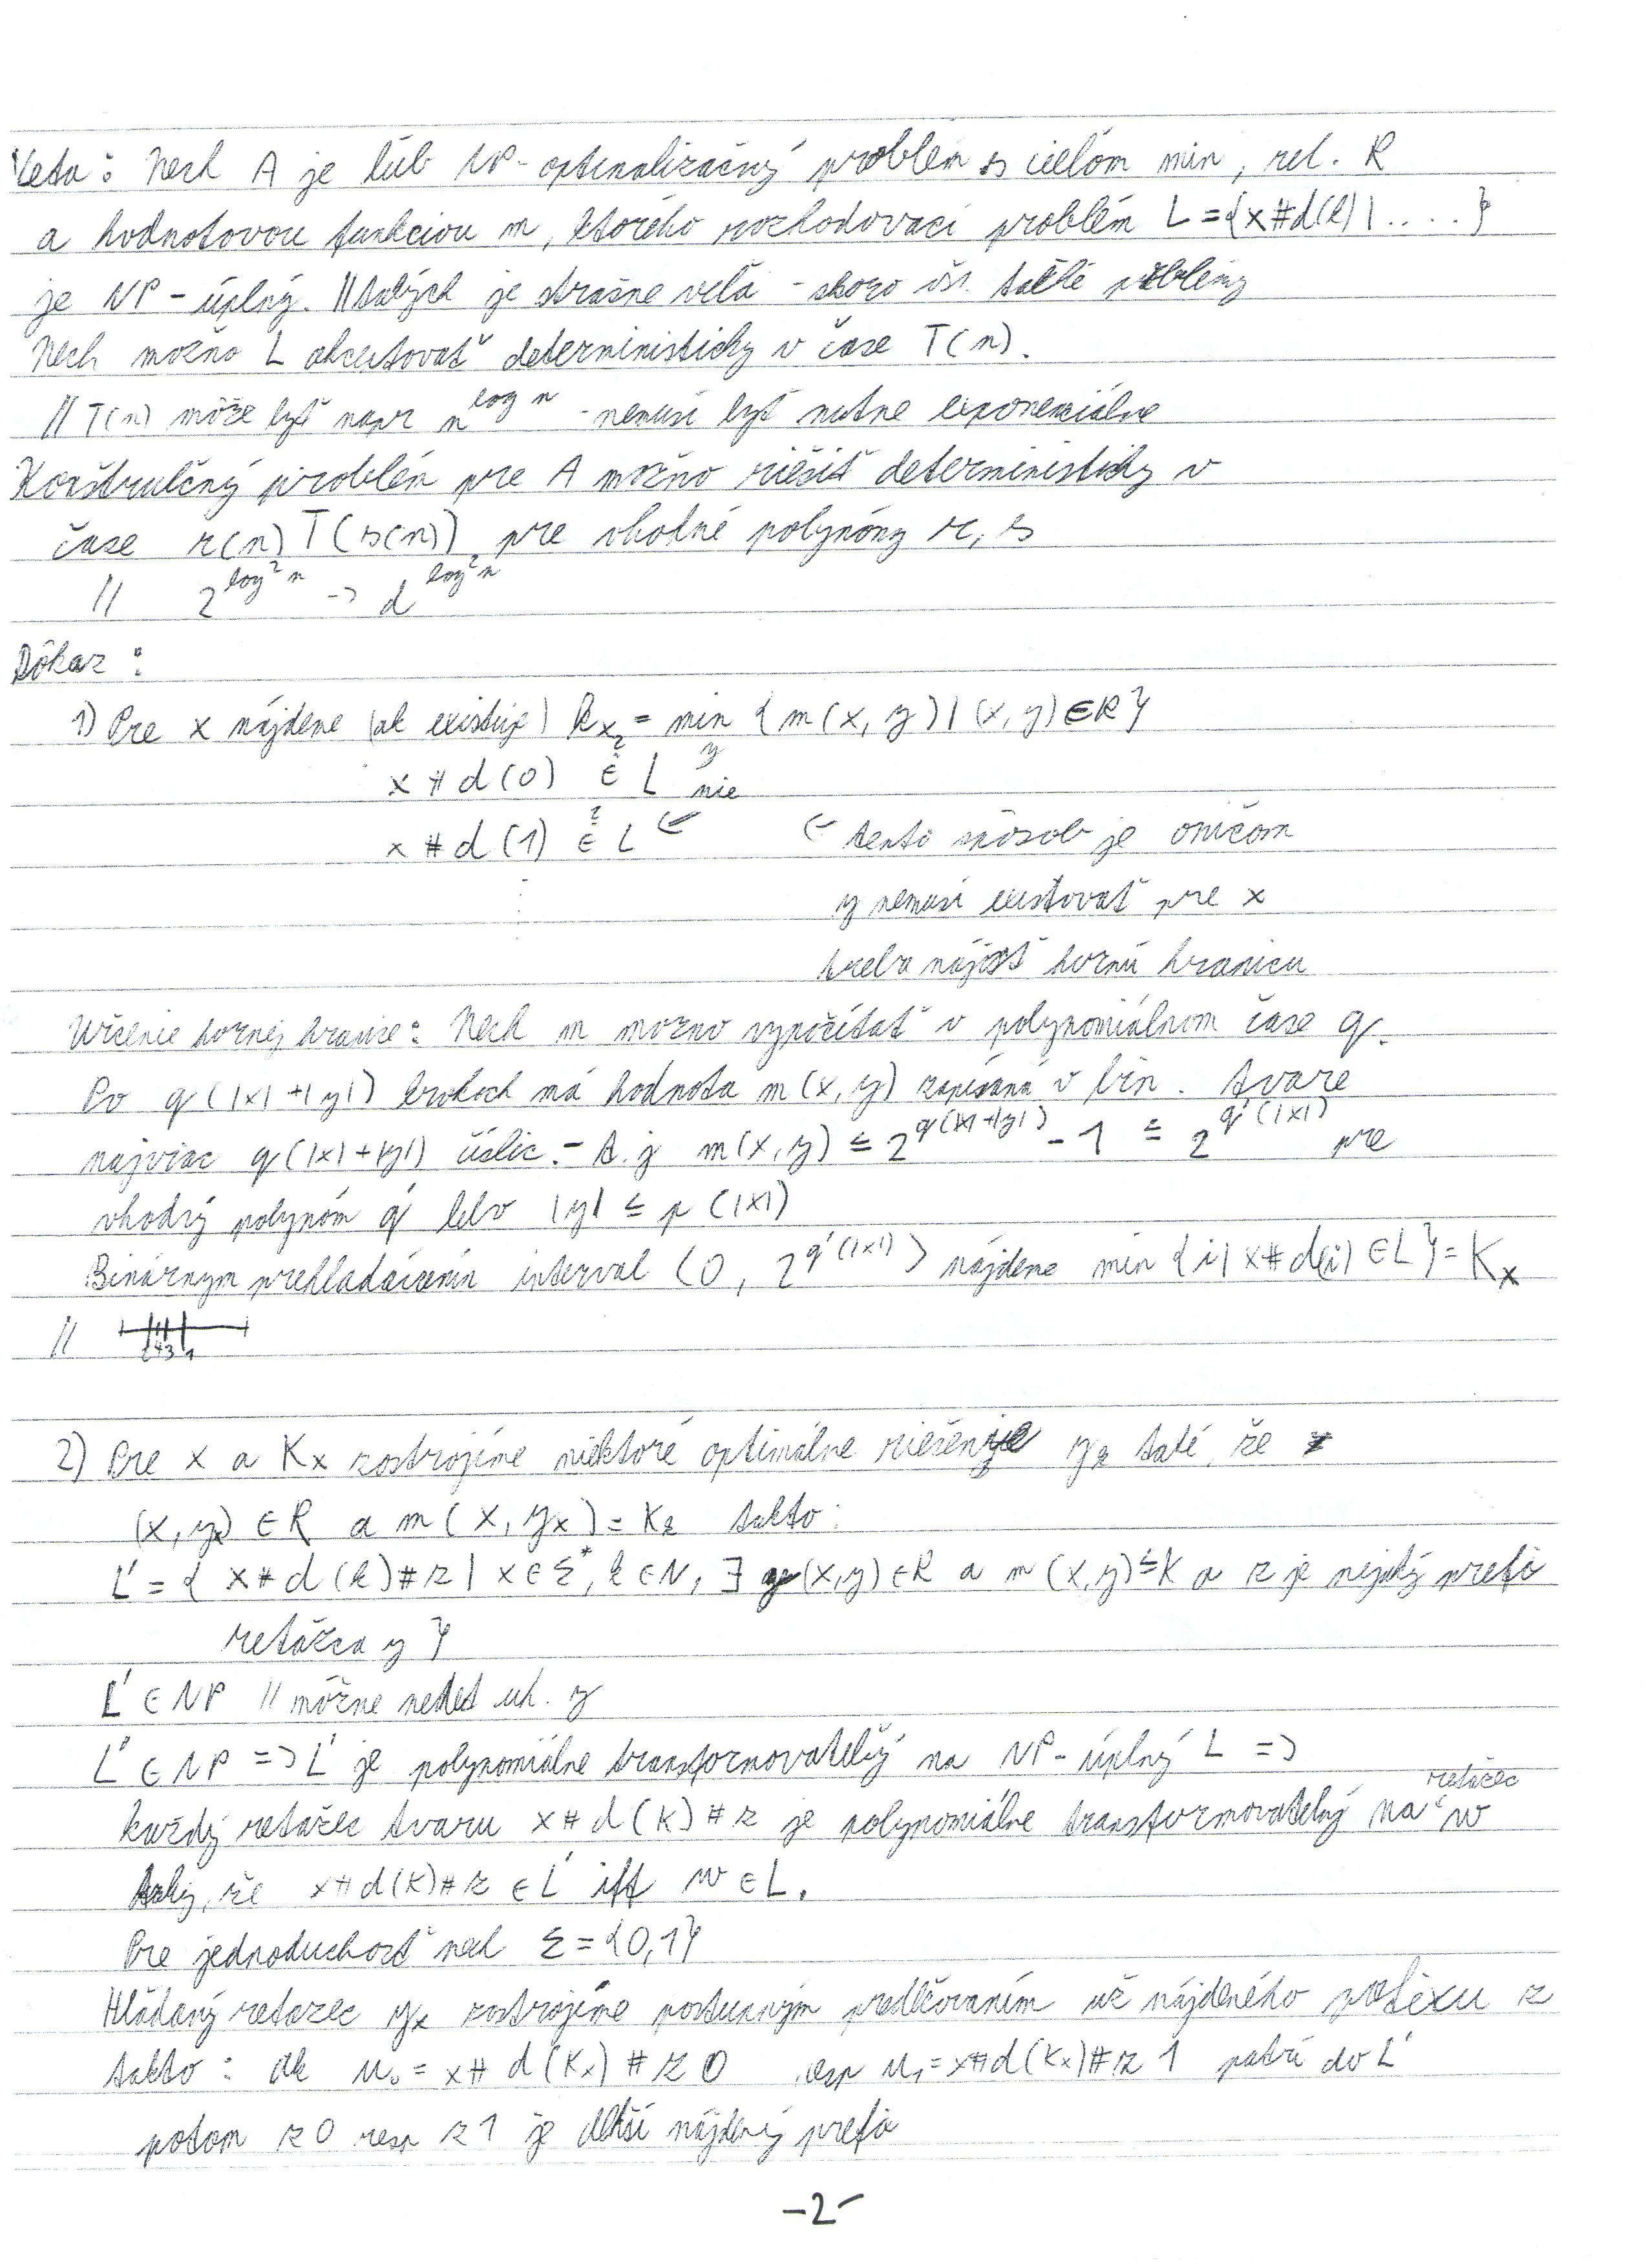 Veta: Nech A je ľub NP-optimalizačný problém s cieľom min, rel. R
a hodnotovou funkciou m, ktorého rozhodovací problém L={x#d(k)|....}
je NP-úplný. // takých je strašne veľa - skoro vš. ťažké problémy
Nech možno L akceptovať deterministicky v čase T(n).
// T(n) môže byť napr n^log n - nemusí byť nutne exponenciálne
Konštrukčný problém pre A možno riešiť deterministicky v
čase r(n) T(s(n)), pre vhodné polynómy r, s
// 2^log² n -> d^log² n
Dôkaz:
1) Pre x nájdene (ak existuje) k_x = min_y {m(x,y)|(x,y)∈R}
x#d(0) ∈? L nie
x#d(1) ∈? L ← ← tento spôsob je oničom
⋮ y nemusí existovať pre x
treba nájsť hornú hranicu
Určenie hornej hranice: Nech m možno vypočítať v polynomiálnom čase q.
Po q(|x|+|y|) krokoch má hodnota m(x,y) zapísaná v bin. tvare
najviac q(|x|+|y|) číslic. - t.j m(x,y) ≤ 2^q(|x|+|y|) - 1 ≤ 2^q'(|x|) pre
vhodný polynóm q' lebo |y| ≤ p(|x|)
Binárnym prehľadávaním interval <0, 2^q'(|x|)> nájdene min {i| x#d(i) ∈L}=K_x
// 2431
2) Pre x a K_x zostrojíme niektoré optimálne riešenie y_x také, že
(x,y_x) ∈R a m(x,y_x)=K_x takto:
L'={ x#d(k)#z | x∈Σ*, k∈N, ∃y (x,y)∈R a m(x,y)≤K a z je nejaký prefix
reťazca y }
L' ∈ NP // môžne nedet uh. y
L' ∈ NP => L' je polynomiálne transformovateľný na NP-úplný L =>
každý reťazec tvaru x#d(K)#z je polynomiálne transformovateľný na reťazec w
taký, že x#d(K)#z ∈L' iff w ∈ L.
Pre jednoduchosť nech Σ={0,1}
Hľadaný reťazec y_x zostrojíme postupným predlžovaním už nájdeného prefixu z
takto: Ak u₀=x#d(K_x)#z0 resp u₁=x#d(K_x)#z1 patrí do L'
potom z0 resp z1 je dlhší nájdený prefix
-2-